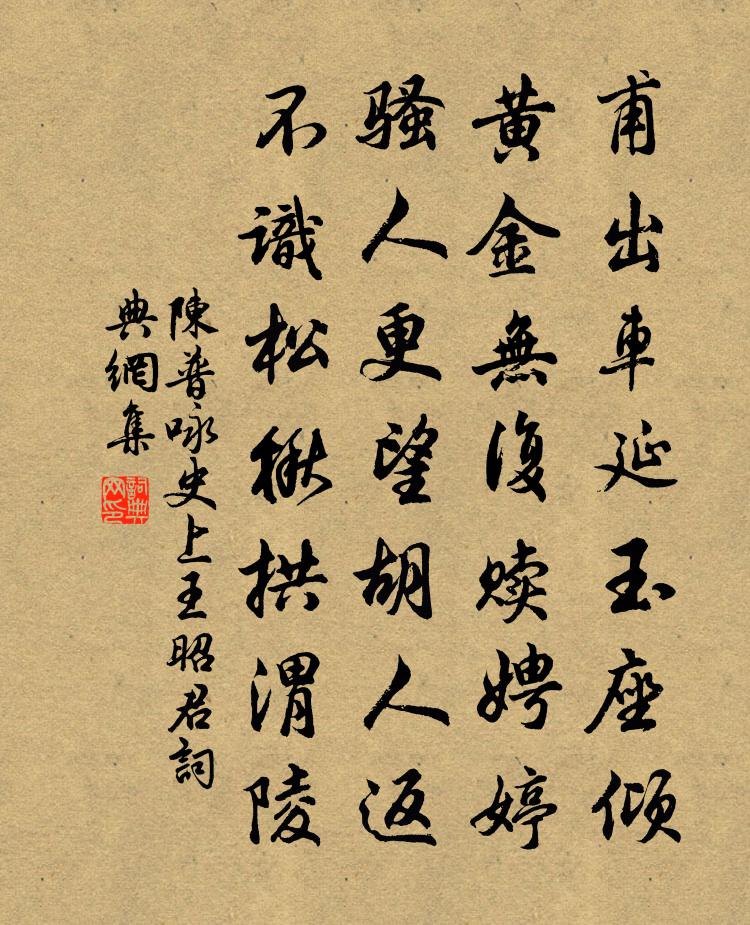 甫出車延玉座傾
黃金無復赎娉婷
骚人更望胡人返
不識松楸拱渭陵
陳普咏史上王昭君詞
典網集
詞典网印